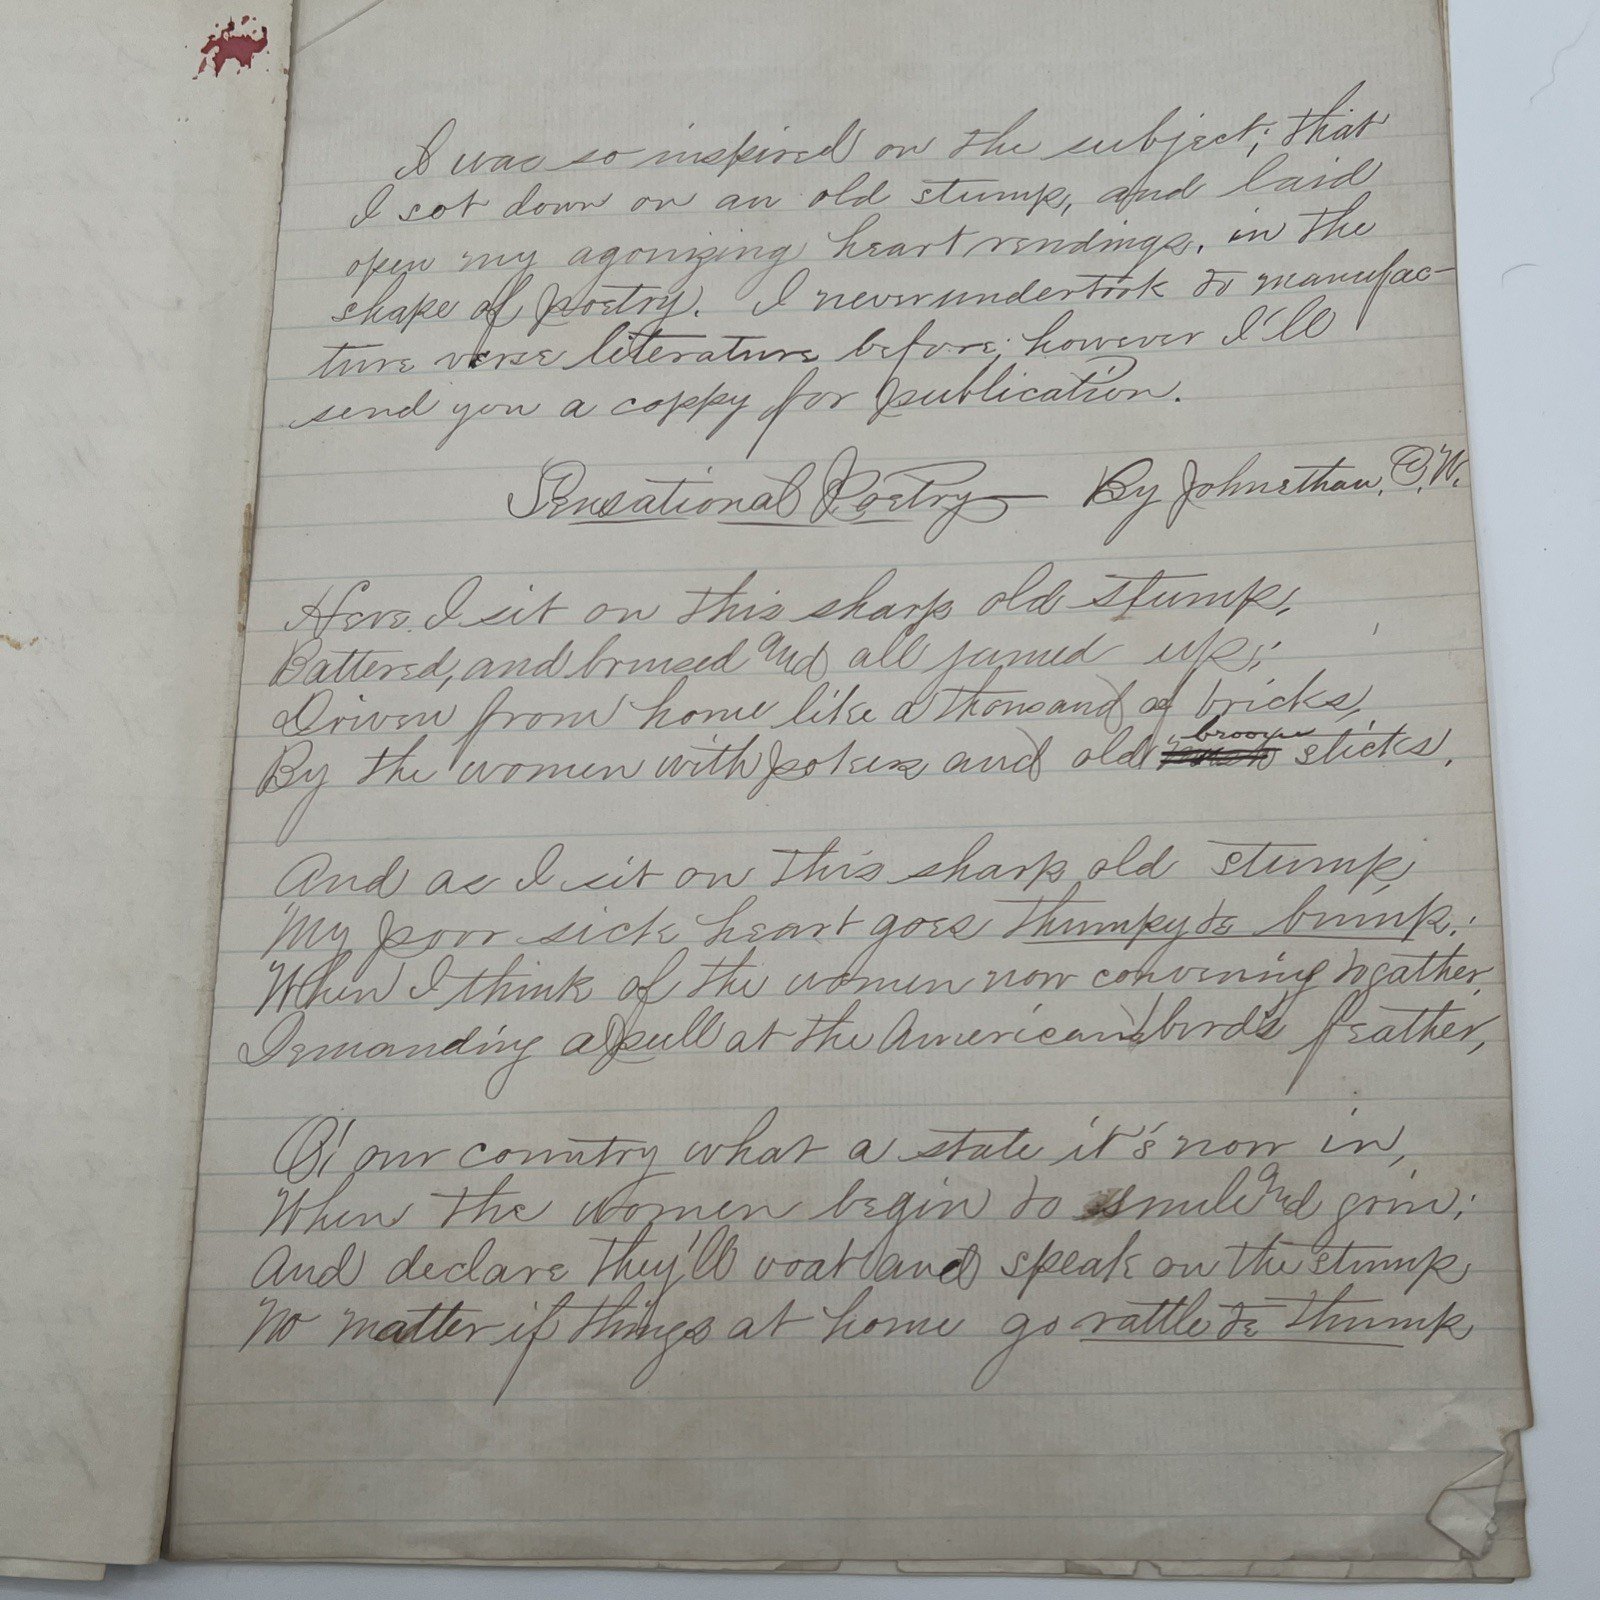 I was so inspired on the subject; that
I sot down on an old stump, and laid
open my agonizing heart rendings, in the
shape of poetry. I never undertook to manufac-
ture verse literature before; however I'll
send you a coppy for publication.
Sensational Poetry By Johnethan. O.W.
Here I sit on this sharp old stump,
Battered, and bruised and all jamed up;
Driven from home like a thousand of bricks,
By the women with pokers and old broom sticks.
And as I sit on this sharp old stump,
My poor sick heart goes thumpy te bump;
When I think of the women now convening togather,
Demanding a pull at the American bird's feather,
O! our country what a state it's now in,
When the women begin to smile and grin;
And declare they'll voat and speak on the stump,
No matter if things at home go rattle te thump